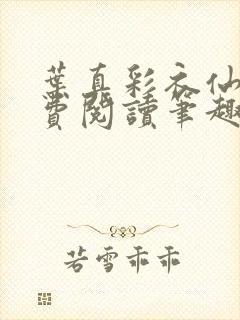 葉真彩衣仙
費閱讀筆趣
若雪乖乖